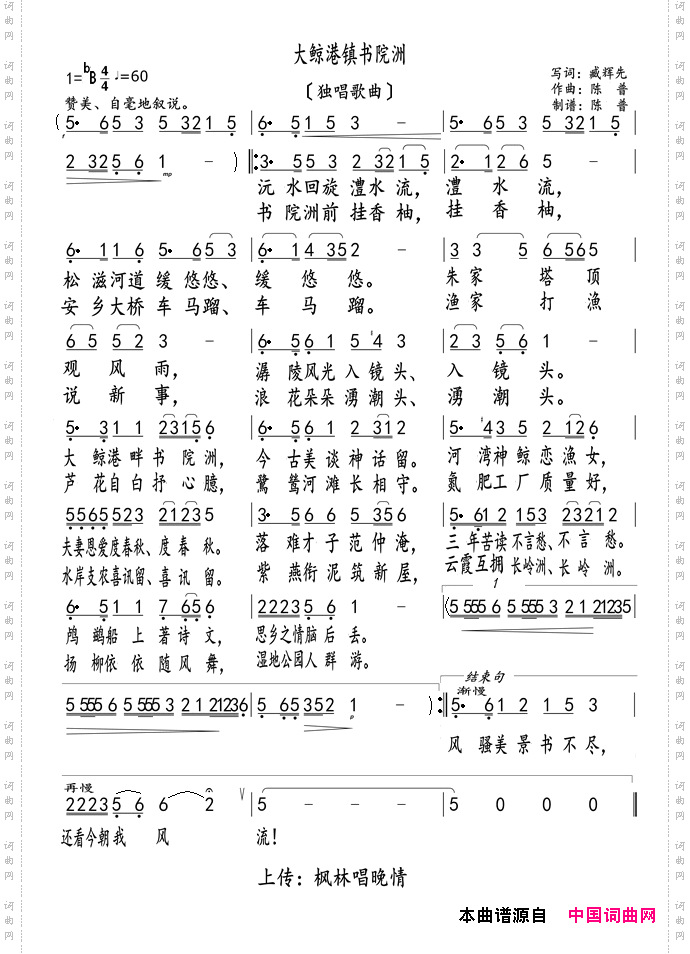 大鲸港镇书院洲
1=bB 4/4 ♩=60
〔独唱歌曲〕
写词：臧辉先
作曲：陈 普
制谱：陈 普
赞美、自毫地叙说。
(5· 6 5 3 5 3 2 1 5 | 6· 5 1 5 3 － | 5· 6 5 3 5 3 2 1 5 |
f
2 3 2 5 6 1 － ) ‖: 3· 5 5 3 2 3 2 1 5 | 2· 1 2 6 5 － |
mp
沅 水回旋 澧水 流， 澧 水 流，
书 院洲前 挂香 柚， 挂 香 柚，
6· 1 1 6 5· 6 5 3 | 6· 1 4 3 5 2 － | 3 3 5 6 5 6 5 |
松 滋河道 缓 悠悠、 缓 悠 悠。 朱 家 塔 顶
安 乡大桥 车 马蹓、 车 马 蹓。 渔 家 打 渔
6 5 5 2 3 － | 6· 5 6 1 5 4 4 3 | 2 3 5 6 1 － |
观 风 雨， 潺 陵风光 入 镜 头、 入 镜 头。
说 新 事， 浪 花朵朵 湧 潮 头、 湧 潮 头。
5· 3 1 1 2 3 1 5 6 | 6· 5 6 1 2 3 1 2 | 5· #4 3 5 2 1 2 6 |
大 鲸港 畔 书 院 洲， 今 古美 谈 神 话 留。 河 湾神 鲸 恋 渔 女，
芦 花自 白 抒 心 臆， 鷺 鸶河 滩 长 相 守。 氮 肥工 厂 质 量 好，
5 5 6 5 5 2 3 2 1 2 3 5 | 3· 5 6 6 5 3 5 6 | 5· 6 1 2 1 5 3 2 3 2 1 2 |
夫妻恩爱度春秋、度 春 秋。 落 难才 子 范 仲 淹， 三 年苦读 不言愁、不 言 愁。
水岸支农喜讯留、喜 讯 留。 紫 燕衔 泥 筑 新 屋， 云霞互拥 长岭洲、长 岭 洲。
1
6· 5 1 1 7 6 5 6 | 2 2 2 3 5 6 1 － | (5 5 5 5 6 5 5 5 5 3 2 1 2 1 2 3 5 |
鸬 鹚船 上 著 诗 文， 思乡之情脑 后 丢。
扬 柳依 依 随 风 舞， 湿地公园人 群 游。
结束句
渐慢
5 5 5 5 6 5 5 5 5 3 2 1 2 1 2 3 6 | 5 6 5 3 5 2 1 － ) :‖ 5· 6 1 2 1 5 3 |
p
风 骚美 景 书 不 尽，
再慢
2 2 2 3 5 6 6 2 V | 5 － － － | 5 0 0 0 ‖
还看今朝我 风 流！
上传：枫林唱晚情
本曲谱源自 中国词曲网